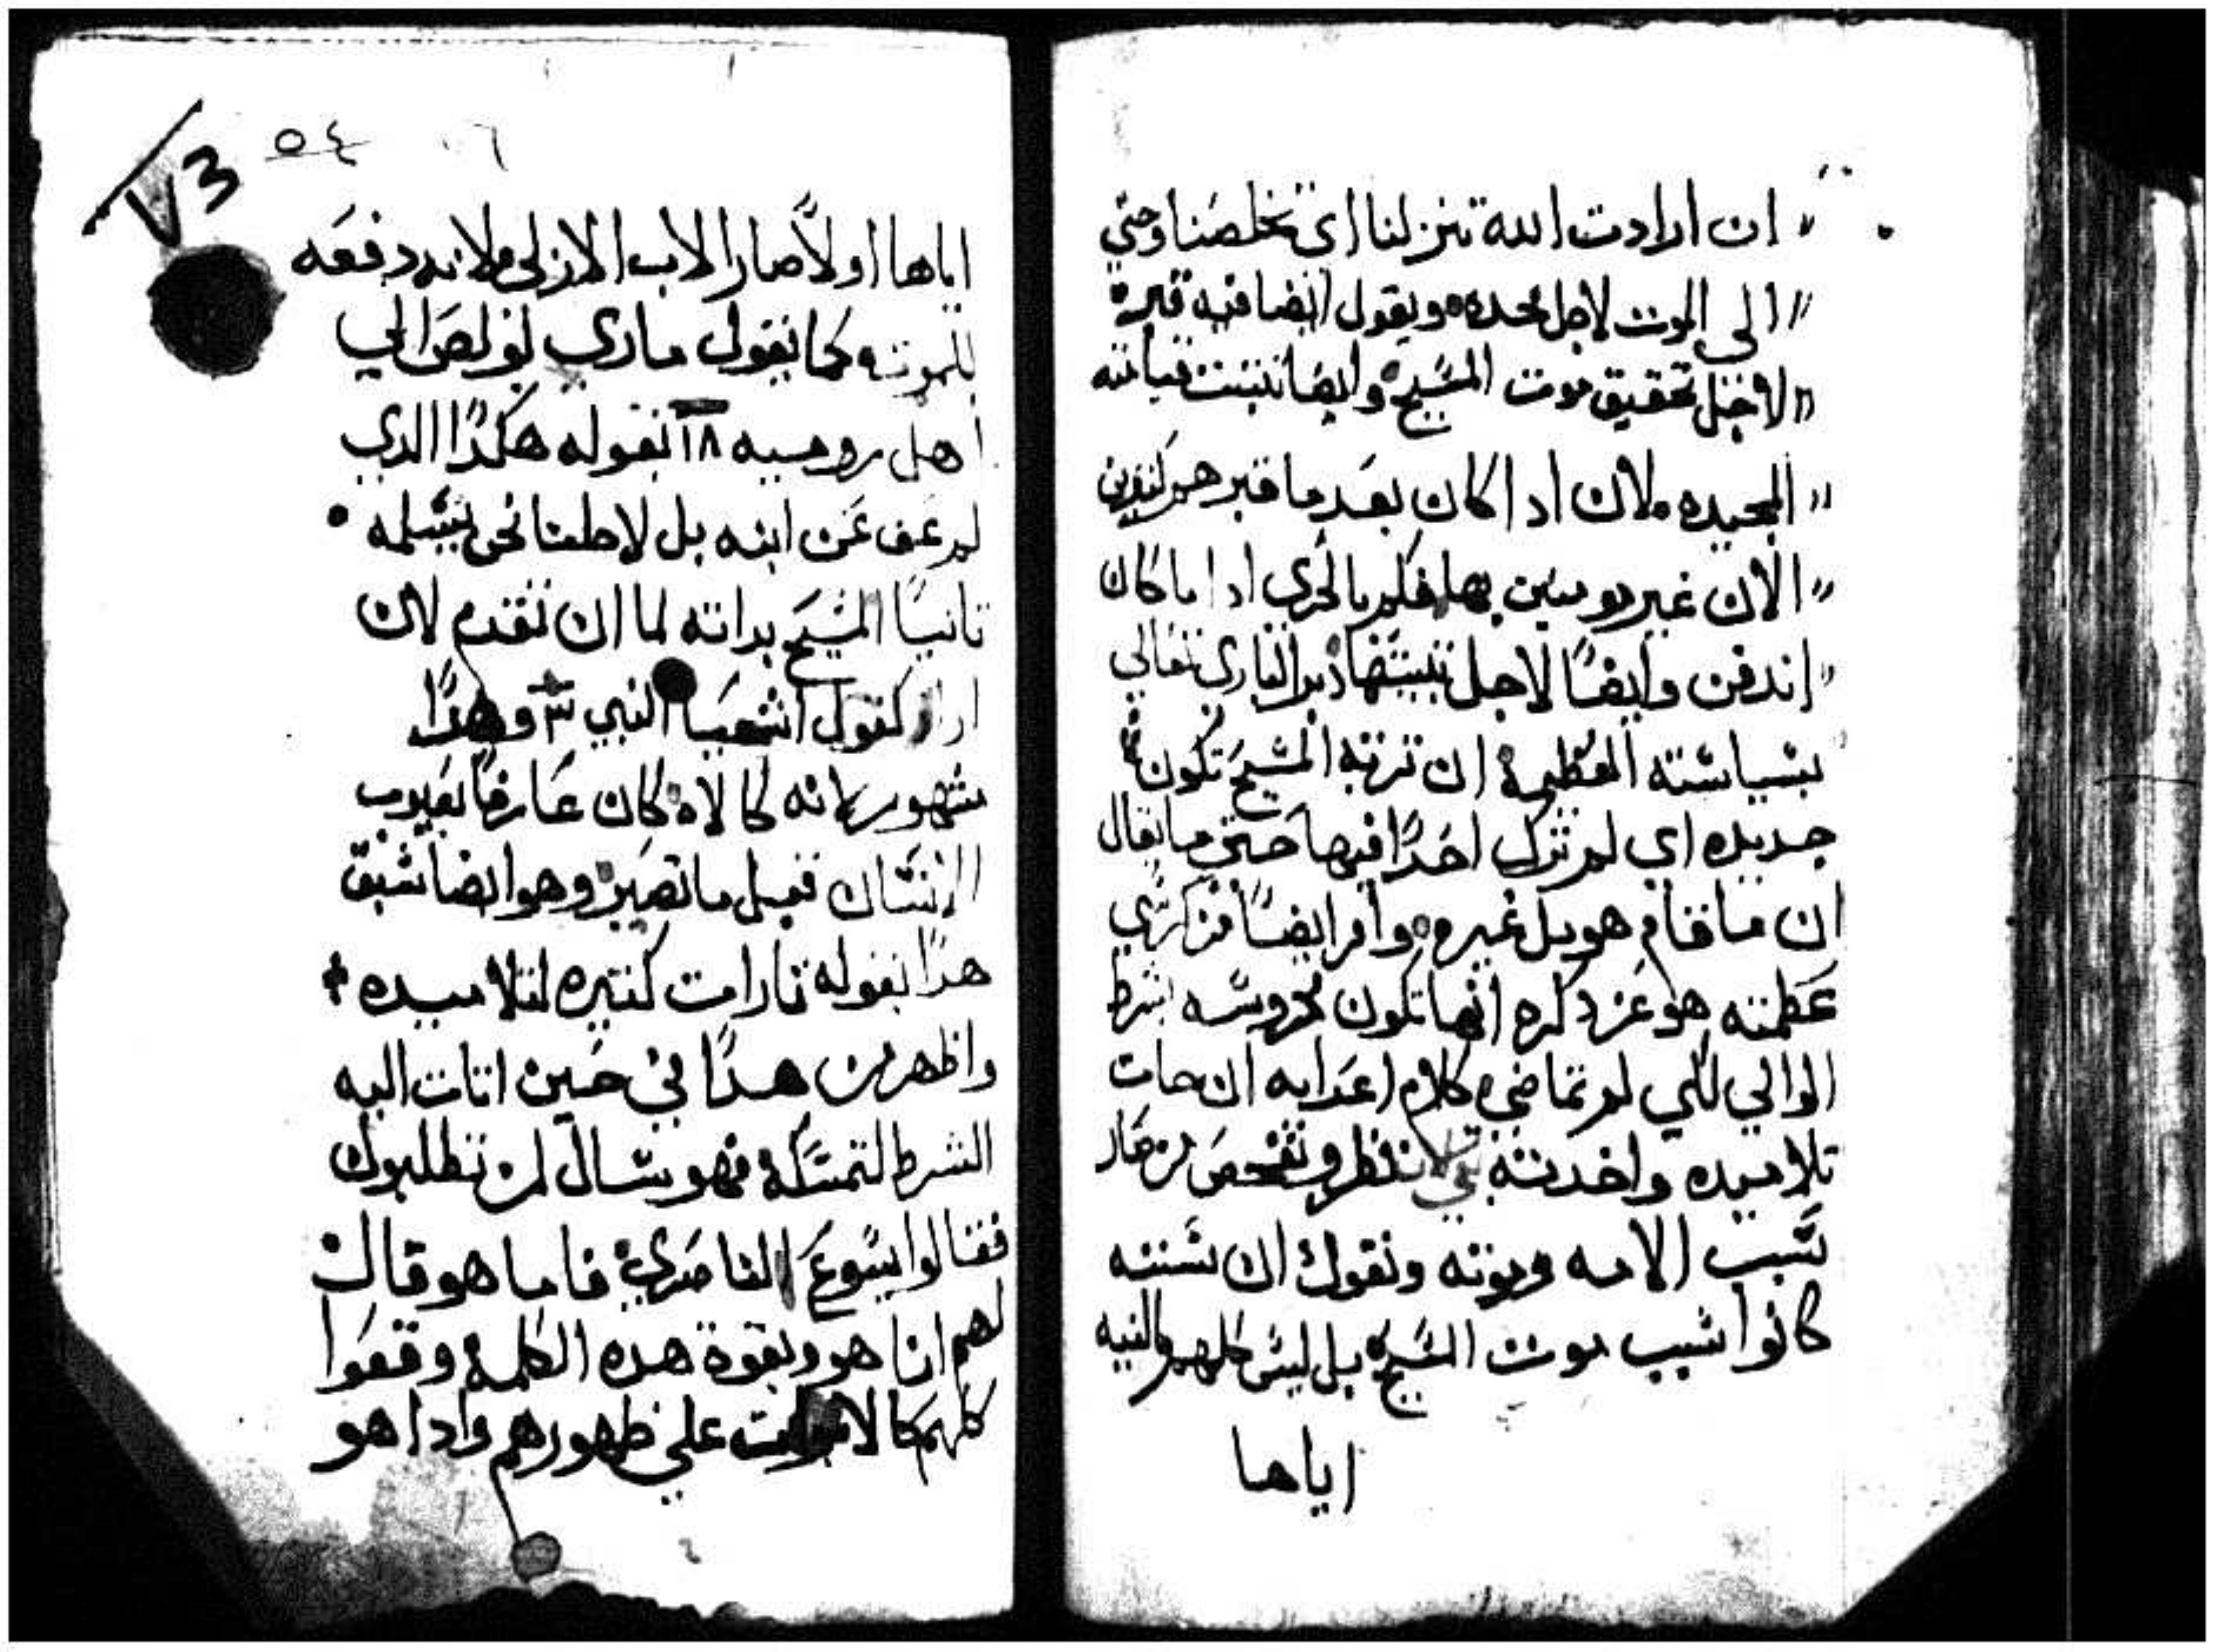 ان ارادت الله تنزلنا اي تخلصنا وحتي
الى الموت لاجل مجده ويقول ايضا فيه قبره
لاجل تحقيق موت المسيح وايضا تتبت قيامته
المجيده لان ادا كان بعد ما قبر هم كتيرين
الان غير مومنين بها فكم بالحري ادا ما كان
اندفن وايضًا لاجل تبيتها دبر الباري تعالي
بسياسته العظيمة ان تربة المسيح تكون
جديده اي لم نزل احدًا فيها حتي ما يقال
ان ما قام هو بل غيره وامر ايضًا من كرسي
عظمته هو عز دكره انها تكون محروسه بشرط
الوالي لكي لم تماضي كلام اعدايه ان جات
تلاميده واخدته تنظر وتفحص من صار
سبب الامه وموته ونقول ان ستته
كانوا سبب موت المسيح بل ليس كلهم بالنيه
اياها
٥٤
V3
اياها اولاً صار الاب الازلي لانه دفعه
للموت كما يقول ماري بولص الي
اهل روميه ٨ بقوله هكدًا الدي
لم عف عن ابنه بل لاجلنا نحن يسلمه
تانيًا المسيح بداته لما ان تقدم لان
اراد كقول اشعيا النبي وهدًا
مشهور لانه كالاه كان عارفًا بعيوب
الانسان قبل ما تصير وهو ايضا سبق
هدًا بقوله تارات كتيره لتلاميده
واظهر من هدًا في حين اتات اليه
الشرط لتمسكه فهو سال لمن تطلبون
فقالوا يسوع الناصري فاما هو قال
لهم انا هو وبقوة هده الكلمه وقعوا
كلهم كالاموات علي ظهورهم وادا هو